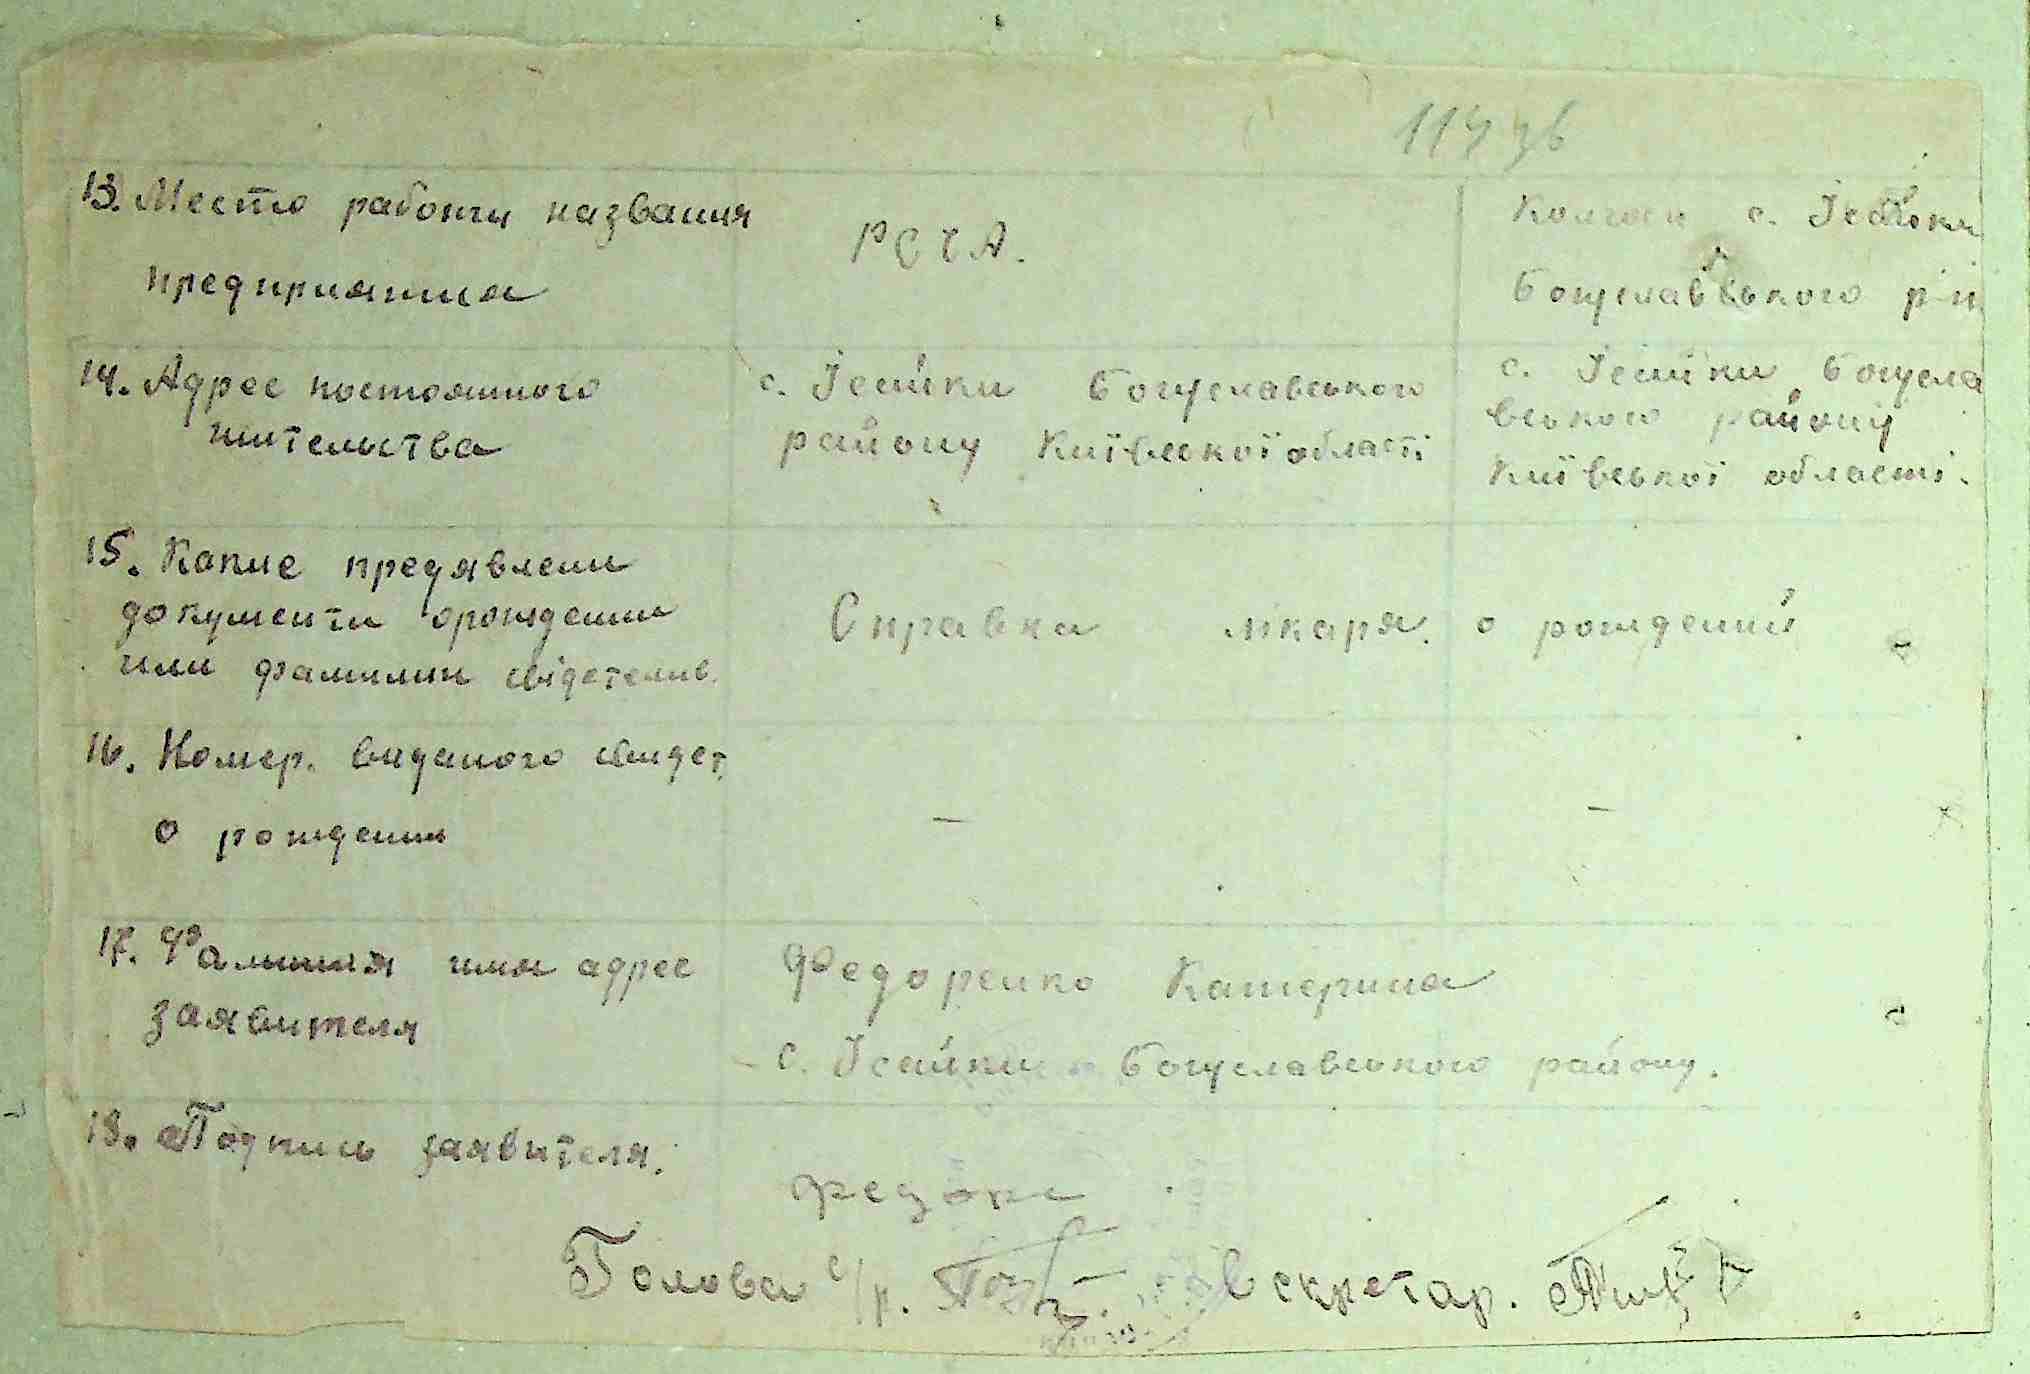 114 зв
13. Место работи названия
предприятия
РСЧА.
Колгосп с. Ісайки
Богуславського р-н
14. Адрес постоянного
жительства
с. Ісайки Богуславського
району Київської області
с. Ісайки Богусла
вського району
Київської області.
15. Какие предявлени
документи орождении
или фамилии свідетелив.
Справка лікаря о рождений
16. Номер. виданого свидет.
о рождении
—
—
17. Фамилия имя адрес
заявителя
Федоренко Катерина
с. Ісайки Богуславського району.
18. Подпись заявителя.
Голова с/р.
Секретар.